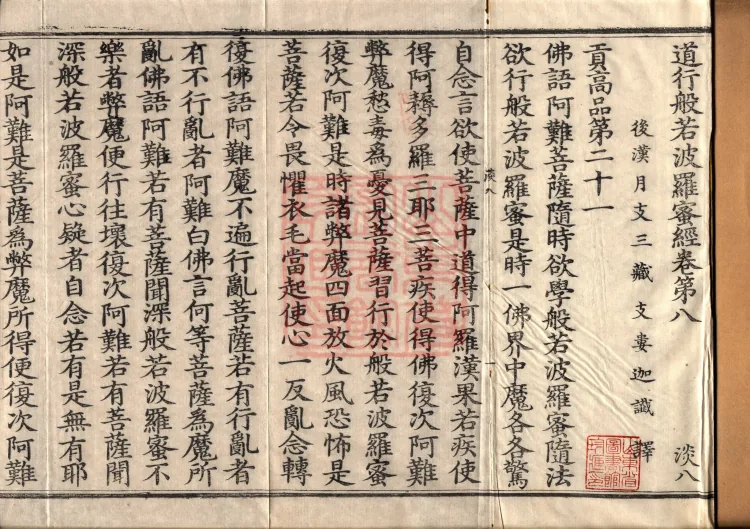 道行般若波羅蜜經卷第八 淡八
後漢月支三藏支婁迦讖 譯
貢高品第二十一
佛語阿難菩薩隨時欲學般若波羅蜜隨法
欲行般若波羅蜜是時一佛界中魔各各驚
淡八 一
自念言欲使菩薩中道得阿羅漢果若疾使
得阿耨多羅三耶三菩疾使得佛復次阿難
弊魔愁毒為憂見菩薩習行於般若波羅蜜
復次阿難是時諸弊魔四面放火風恐怖是
菩薩若令畏懼衣毛當起使心一反亂念轉
復佛語阿難魔不遍行亂菩薩若有行亂者
有不行亂者阿難白佛言何等菩薩為魔所
亂佛語阿難若有菩薩聞深般若波羅蜜不
樂者弊魔便行往壞復次阿難若有菩薩聞
深般若波羅蜜心疑者自念若有是無有耶
如是阿難是菩薩為弊魔所得便復次阿難